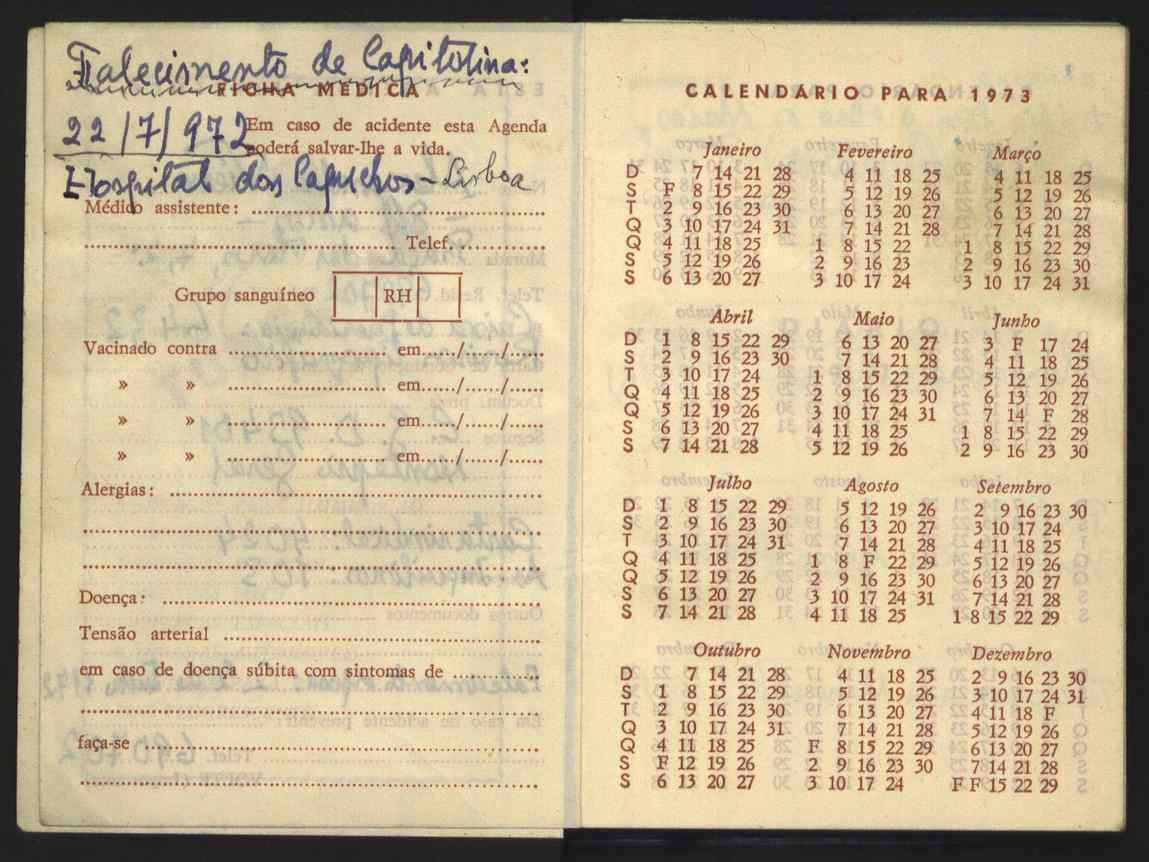 Falecimento de Capitolina:
FICHA MÉDICA
22/7/972
Em caso de acidente esta Agenda
poderá salvar-lhe a vida.
Hospital dos Capuchos - Lisboa
Médico assistente:
Telef.
Grupo sanguíneo RH
Vacinado contra em / /
» » em / /
» » em / /
» » em / /
Alergias:
Doença:
Tensão arterial
em caso de doença súbita com sintomas de
faça-se
CALENDÁRIO PARA 1973
Janeiro Fevereiro Março
D 7 14 21 28 4 11 18 25 4 11 18 25
S F 8 15 22 29 5 12 19 26 5 12 19 26
T 2 9 16 23 30 6 13 20 27 6 13 20 27
Q 3 10 17 24 31 7 14 21 28 7 14 21 28
Q 4 11 18 25 1 8 15 22 1 8 15 22 29
S 5 12 19 26 2 9 16 23 2 9 16 23 30
S 6 13 20 27 3 10 17 24 3 10 17 24 31
Abril Maio Junho
D 1 8 15 22 29 6 13 20 27 3 F 17 24
S 2 9 16 23 30 7 14 21 28 4 11 18 25
T 3 10 17 24 1 8 15 22 29 5 12 19 26
Q 4 11 18 25 2 9 16 23 30 6 13 20 27
Q 5 12 19 26 3 10 17 24 31 7 14 F 28
S 6 13 20 27 4 11 18 25 1 8 15 22 29
S 7 14 21 28 5 12 19 26 2 9 16 23 30
Julho Agosto Setembro
D 1 8 15 22 29 5 12 19 26 2 9 16 23 30
S 2 9 16 23 30 6 13 20 27 3 10 17 24
T 3 10 17 24 31 7 14 21 28 4 11 18 25
Q 4 11 18 25 1 8 F 22 29 5 12 19 26
Q 5 12 19 26 2 9 16 23 30 6 13 20 27
S 6 13 20 27 3 10 17 24 31 7 14 21 28
S 7 14 21 28 4 11 18 25 1 8 15 22 29
Outubro Novembro Dezembro
D 7 14 21 28 4 11 18 25 2 9 16 23 30
S 1 8 15 22 29 5 12 19 26 3 10 17 24 31
T 2 9 16 23 30 6 13 20 27 4 11 18 F
Q 3 10 17 24 31 7 14 21 28 5 12 19 26
Q 4 11 18 25 F 8 15 22 29 6 13 20 27
S F 12 19 26 2 9 16 23 30 7 14 21 28
S 6 13 20 27 3 10 17 24 F F 15 22 29